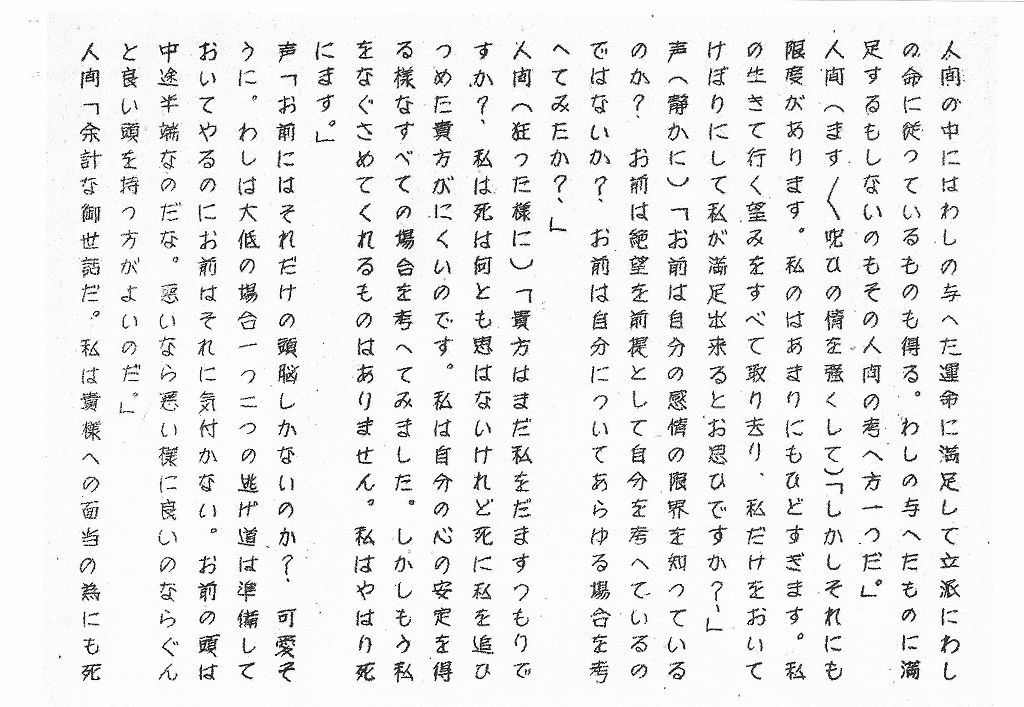 人間の中にはわしの与へた運命に満足して立派にわし
の命に従っているものも得る。わしの与へたものに満
足するもしないのもその人間の考へ方一つだ。」
人間へます〱呪ひの情を強くして）「しかしそれにも
限度があります。私のはあまりにもひどすぎます。私
の生きて行く望みをすべて取り去り、私だけをおいて
けぼりにして私が満足出来るとお思ひですか？、」
声へ静かに）「お前は自分の感情の限界を知っている
のか？　お前は絶望を前提として自分を考へているの
ではないか？　お前は自分についてあらゆる場合を考
へてみたか？、」
人間へ狂った様に）「貴方はまだ私をだますつもりで
すか？、私は死は何とも思はないけれど死に私を追ひ
つめた貴方がにくいのです。私は自分の心の安定を得
る様なすべての場合を考へてみました。しかしもう私
をなぐさめてくれるものはありません。私はやはり死
にます。」
声「お前にはそれだけの頭脳しかないのか？　可愛そ
うに。わしは大低の場合一つ二つの逃げ道は準備して
おいてやるのにお前はそれに気付かない。お前の頭は
中途半端なのだな。悪いなら悪い様に良いのならぐん
と良い頭を持つ方がよいのだ。」
人間「余計な御世話だ。私は貴様への面当の為にも死